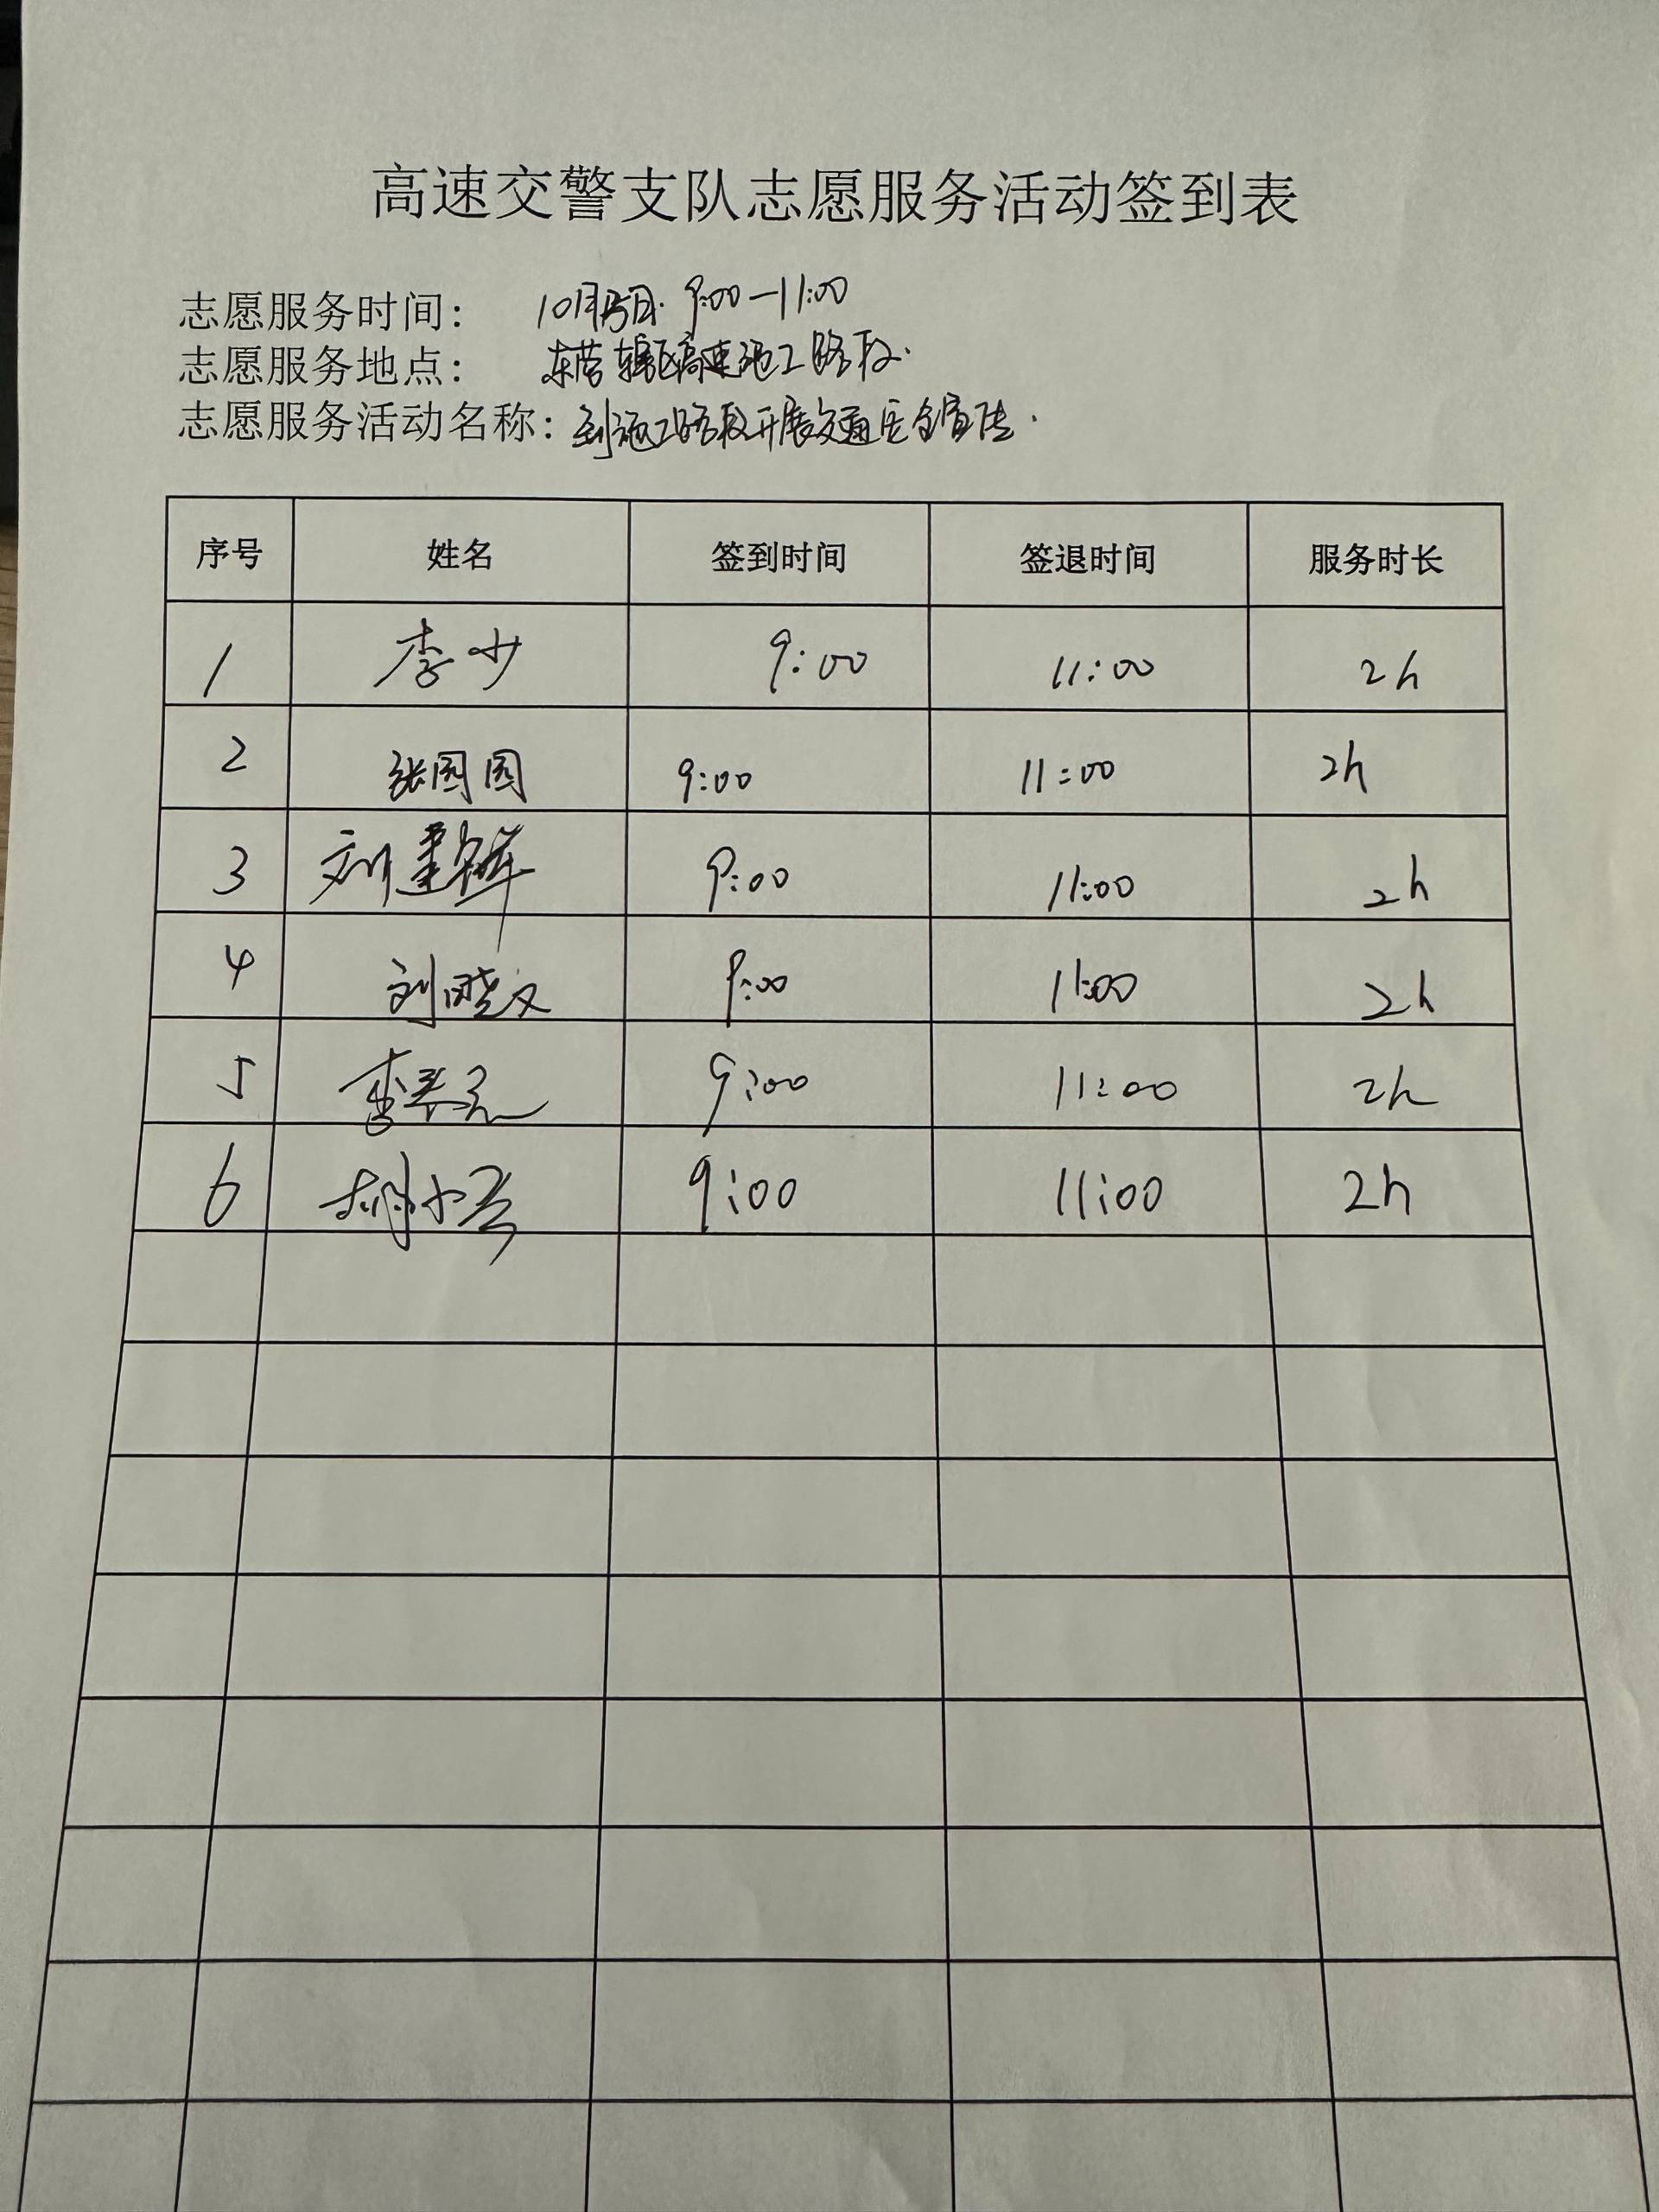 高速交警支队志愿服务活动签到表
志愿服务时间: 10月15日. 9:00—11:00
志愿服务地点: 东营辖区高速施工路段.
志愿服务活动名称: 到施工路段开展交通安全宣传.
序号 姓名 签到时间 签退时间 服务时长
1 李少 9:00 11:00 2h
2 张园园 9:00 11:00 2h
3 刘建 9:00 11:00 2h
4 刘晓义 9:00 11:00 2h
5 李 9:00 11:00 2h
6 胡小 9:00 11:00 2h